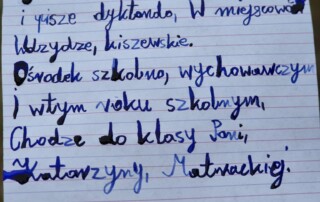 i pisze dyktondo, w miejscowoś
Wdzydze, kiszewskie.
Ośrodek szkolno, wychowawczym
I wtym roku szkolnym,
Chodze do klasy Pani,
Katarzyny, Matwackiej.